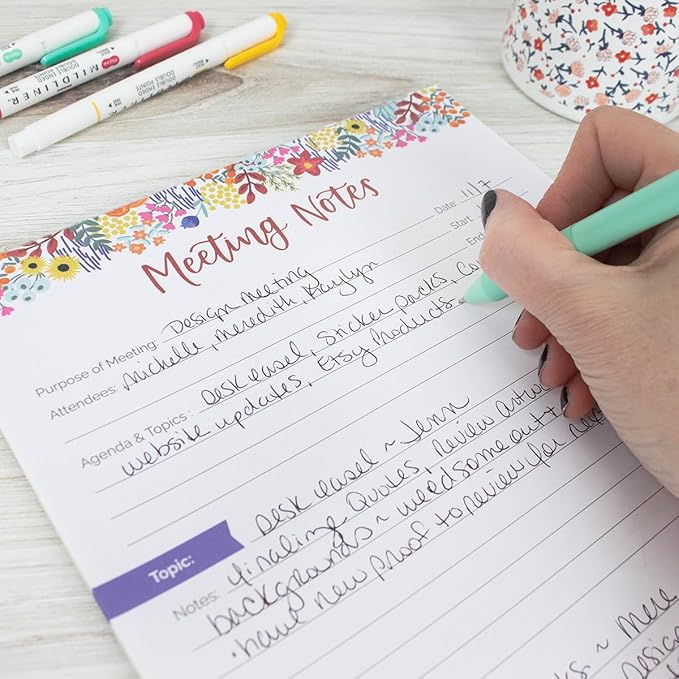 MILDLINER DOUBLE ENDED
DOUBLE ENDED
Meeting Notes
Date: 11/7
Start:
End
Purpose of Meeting: Design Meeting
Attendees: Michelle, Meredith, Kaylyn
Agenda & Topics: Desk easel, Sticker packs, Co
website updates, Etsy Products
Topic: Desk easel ~ Jenn
Notes: finaling quotes, review artwo
backgrounds ~ weed some out +
have new proof to review for nex
~ Mere